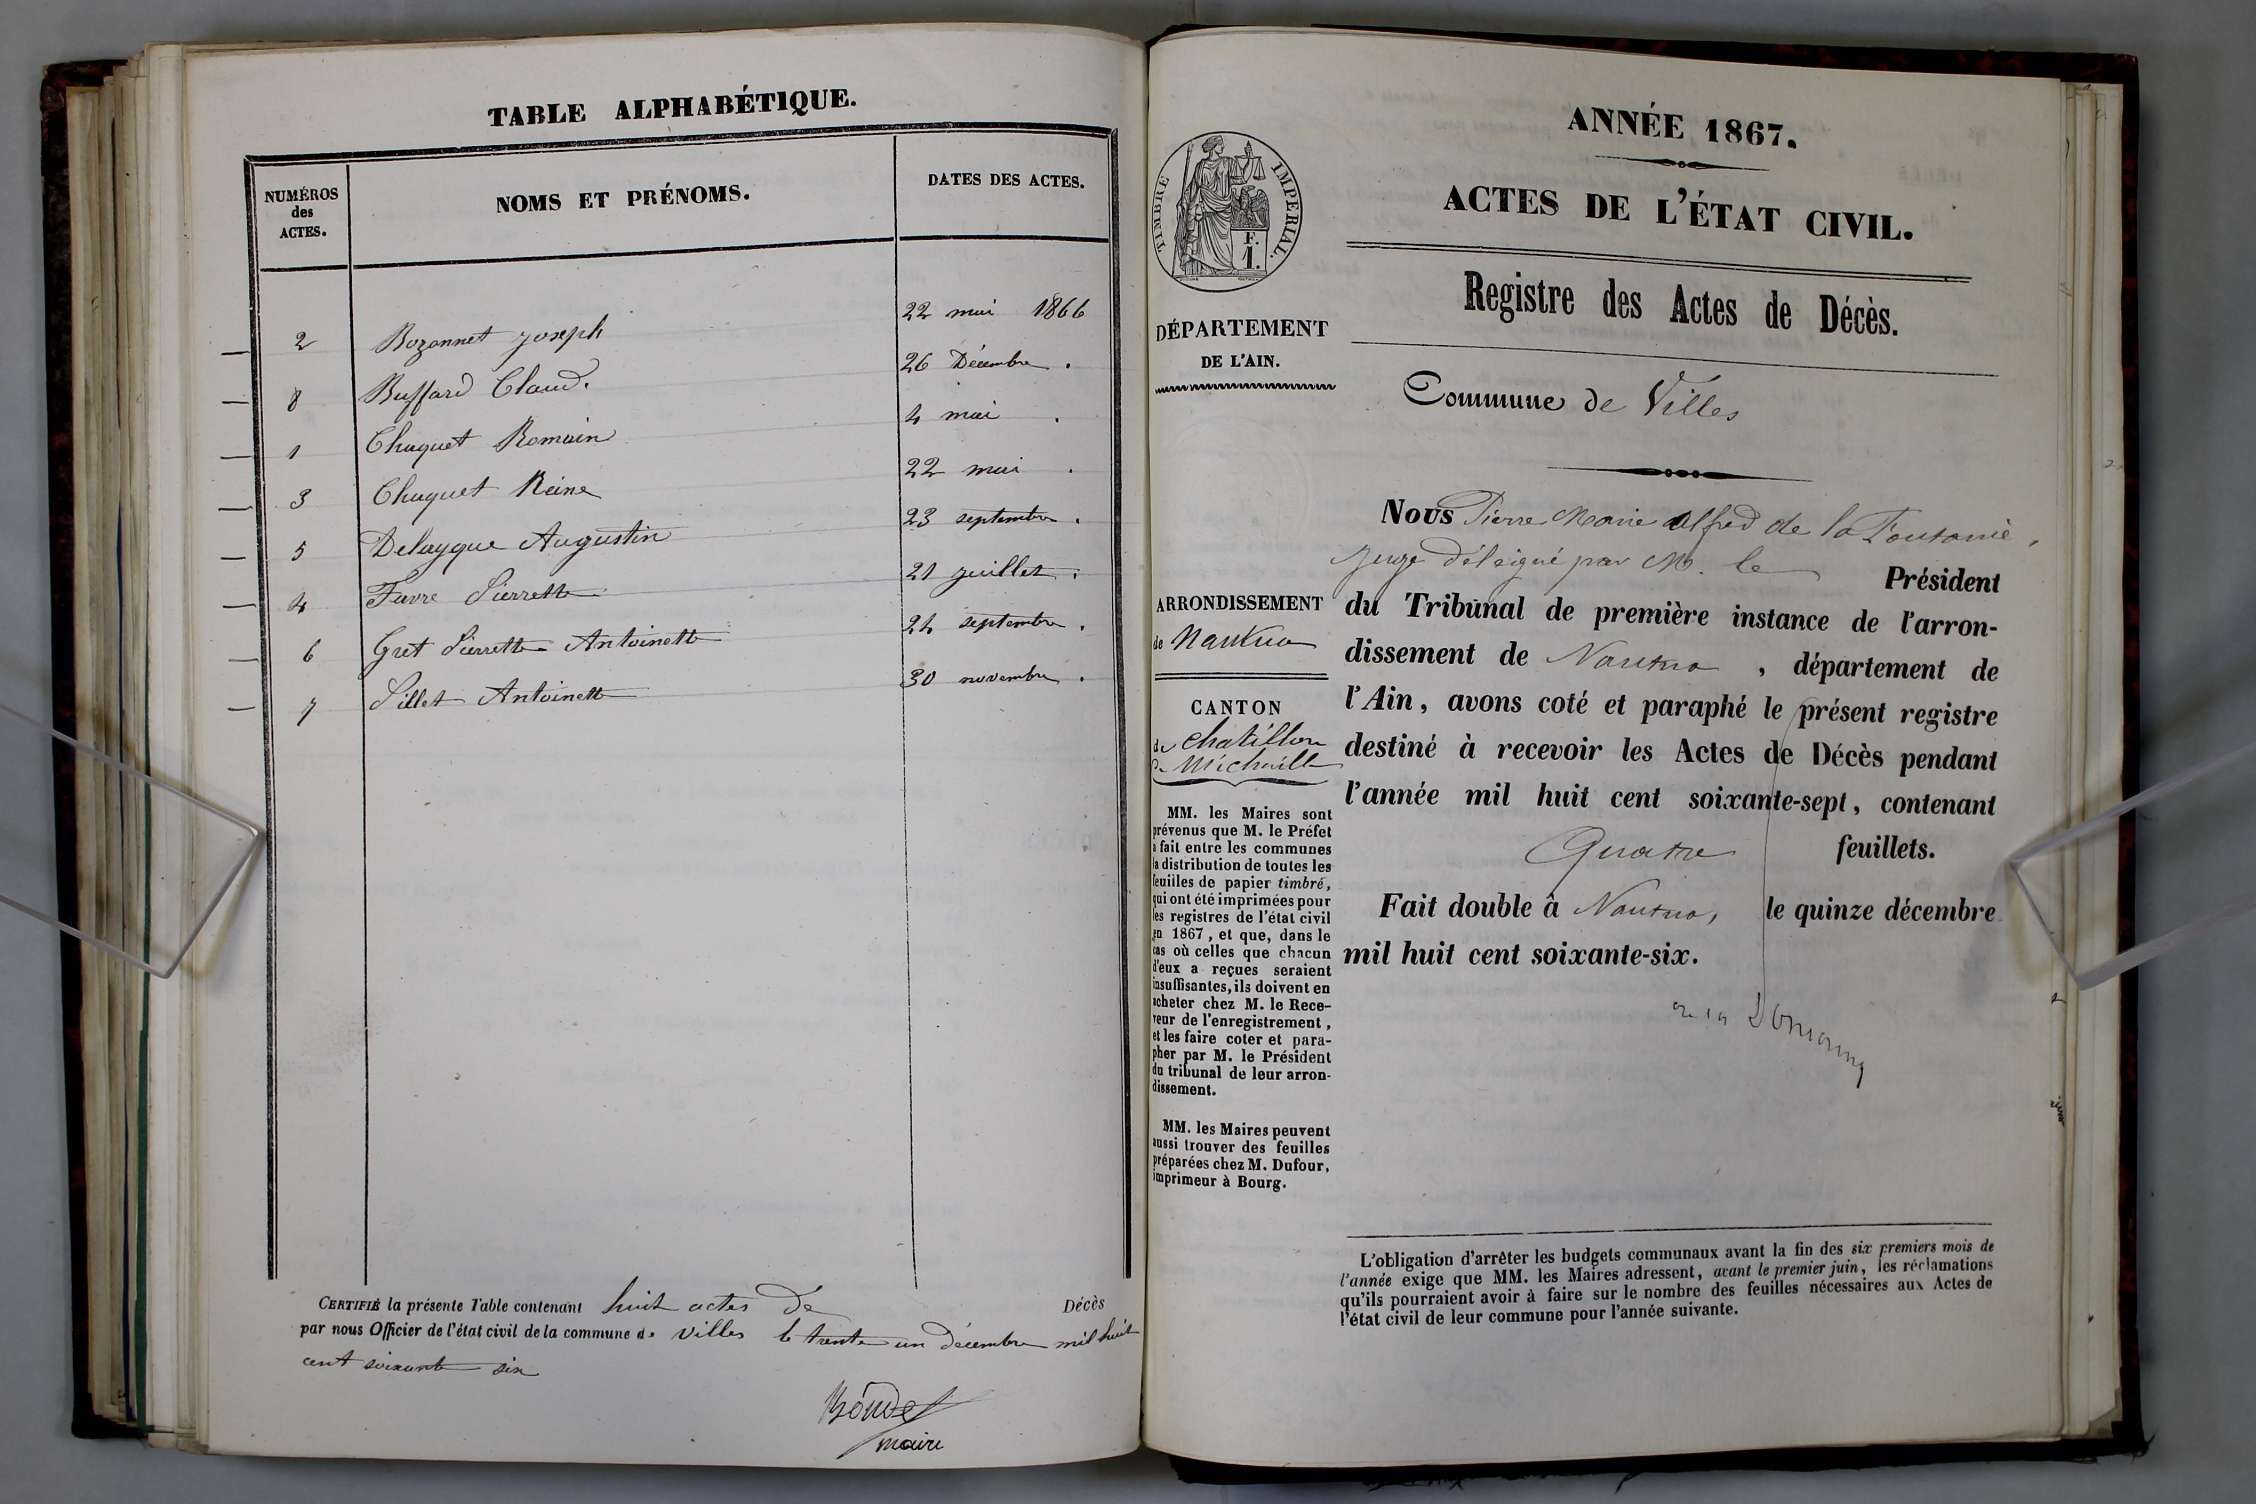 TABLE ALPHABÉTIQUE.
NUMÉROS
des
ACTES.
NOMS ET PRÉNOMS.
DATES DES ACTES.
2 Bozonnet Joseph 22 mai 1866
8 Buffard Claud. 26 Décembre .
1 Chaquet Romain 4 mai .
3 Chaquet Reine 22 mai .
5 Delaygue Augustin 23 septembre .
4 Favre Pierrette 21 juillet .
6 Gret Pierrette Antoinette 24 septembre .
7 Pillet Antoinette 30 novembre .
CERTIFIÉ la présente Table contenant huit actes de Décès
par nous Officier de l'état civil de la commune de Villes le trente un décembre mil huit
cent soixante six
maire
TIMBRE IMPERIAL.
F.
1.
DÉPARTEMENT
DE L'AIN.
ARRONDISSEMENT
de Nantua
CANTON
de Chatillon
de Michaille
MM. les Maires sont
prévenus que M. le Préfet
a fait entre les communes
la distribution de toutes les
feuilles de papier timbré,
qui ont été imprimées pour
les registres de l'état civil
en 1867, et que, dans le
cas où celles que chacun
d'eux a reçues seraient
insuffisantes, ils doivent en
acheter chez M. le Rece-
veur de l'enregistrement,
et les faire coter et para-
pher par M. le Président
du tribunal de leur arron-
dissement.
MM. les Maires peuvent
aussi trouver des feuilles
préparées chez M. Dufour,
imprimeur à Bourg.
ANNÉE 1867.
ACTES DE L'ÉTAT CIVIL.
Registre des Actes de Décès.
Commune de Villes
Nous Pierre Marie Alfred de la
Juge délégué par M. le Président
du Tribunal de première instance de l'arron-
dissement de Nantua, département de
l'Ain, avons coté et paraphé le présent registre
destiné à recevoir les Actes de Décès pendant
l'année mil huit cent soixante-sept, contenant
Quatre feuillets.
Fait double à Nantua, le quinze décembre
mil huit cent soixante-six.
L'obligation d'arrêter les budgets communaux avant la fin des six premiers mois de
l'année exige que MM. les Maires adressent, avant le premier juin, les réclamations
qu'ils pourraient avoir à faire sur le nombre des feuilles nécessaires aux Actes de
l'état civil de leur commune pour l'année suivante.